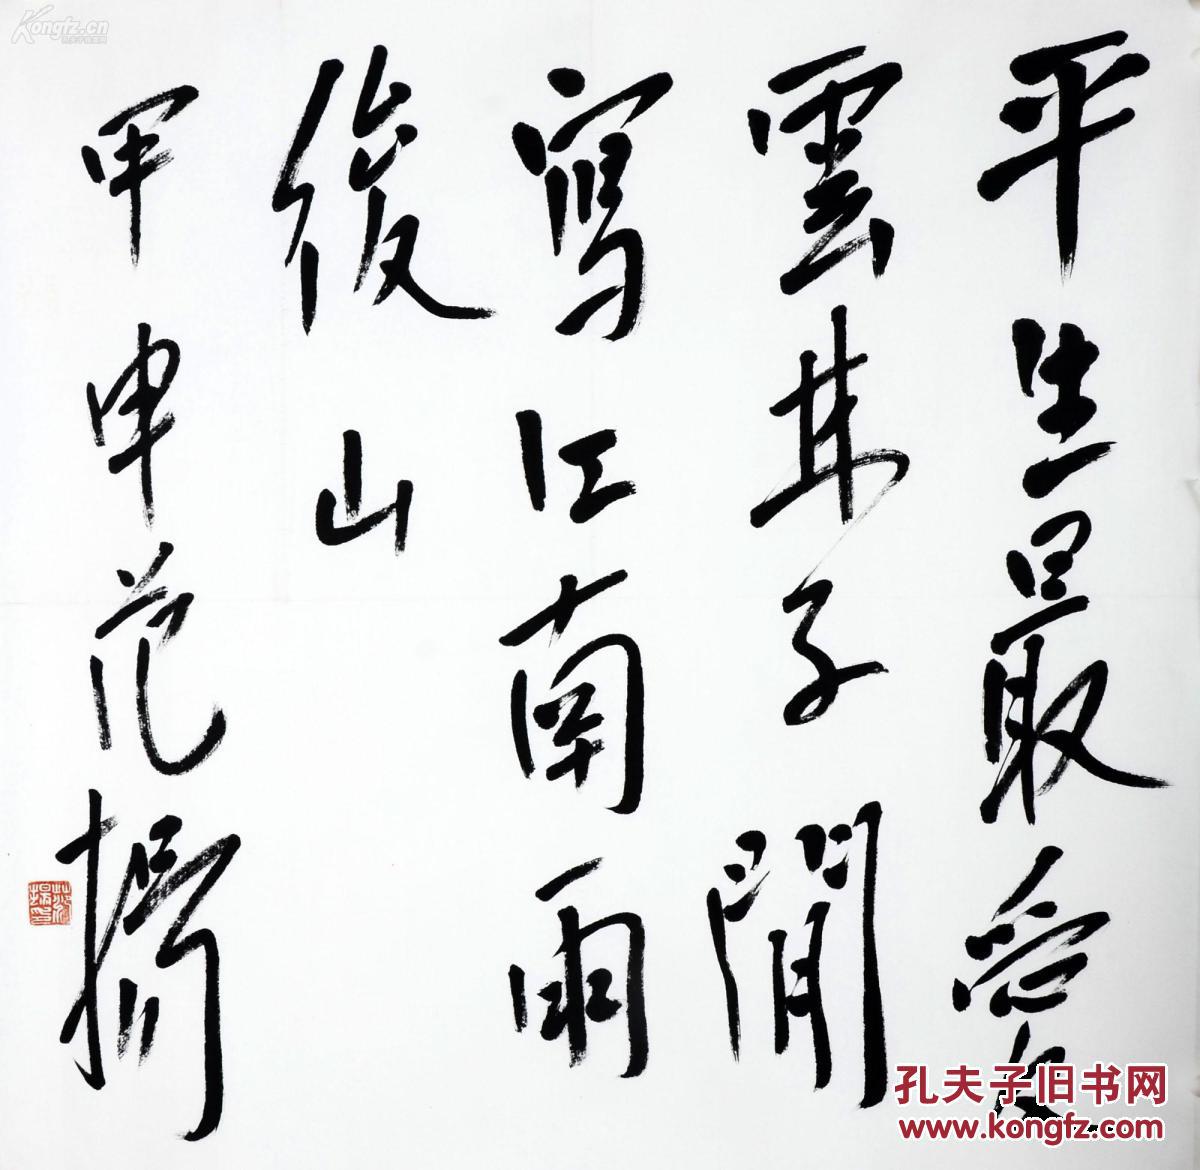 平生最愛
雲林子閒
寫江南雨
後山
甲申范揚
范揚印
孔夫子旧书网
www.kongfz.com
Kongfz.cn